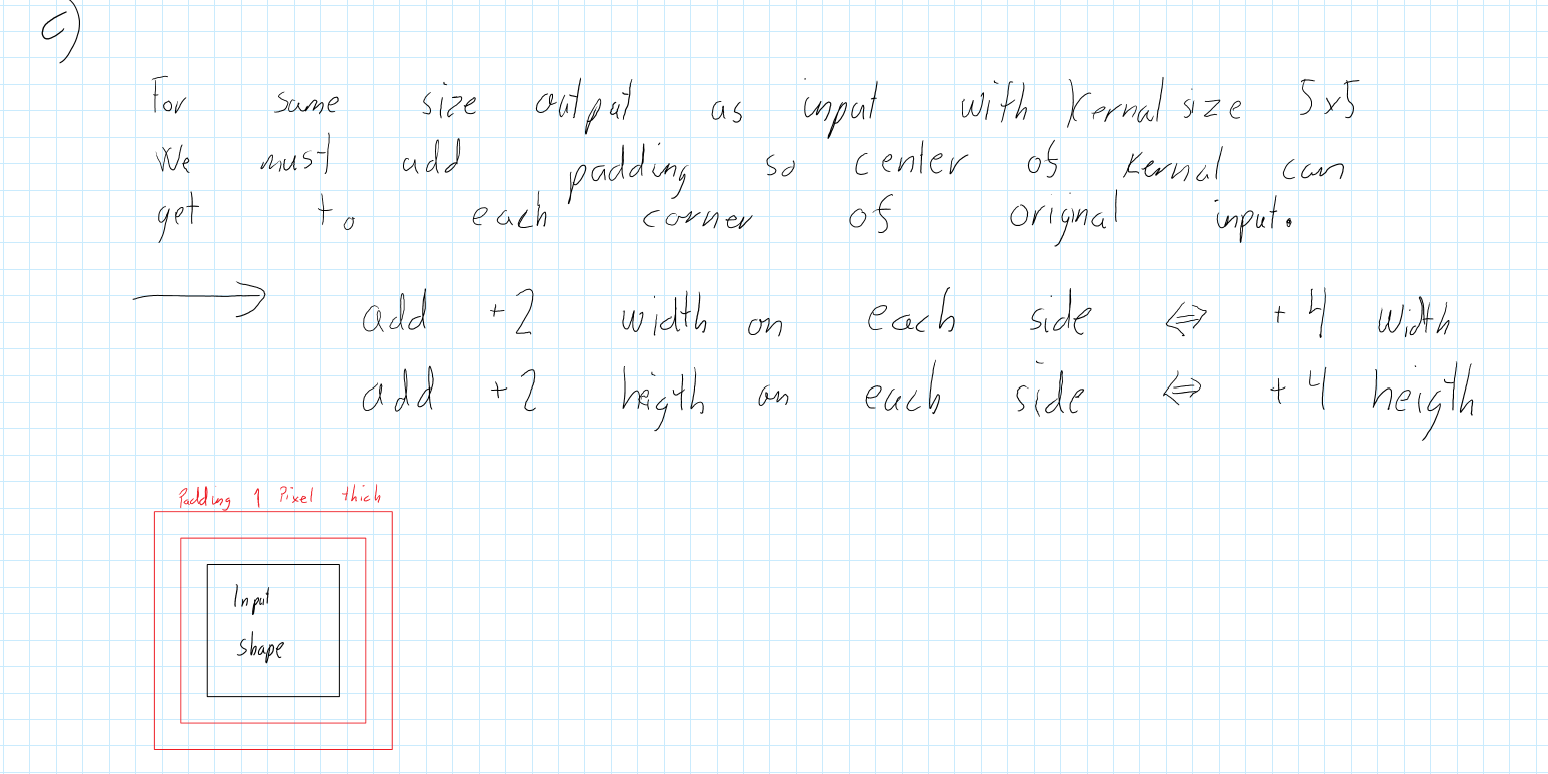 c)
For same size output as input with Kernal size 5x5
We must add padding so center of kernal can
get to each corner of original input.
→ add +2 width on each side ⇔ +4 width
add +2 higth on each side ⇔ +4 heigth
Padding 1 Pixel thich
Input
shape